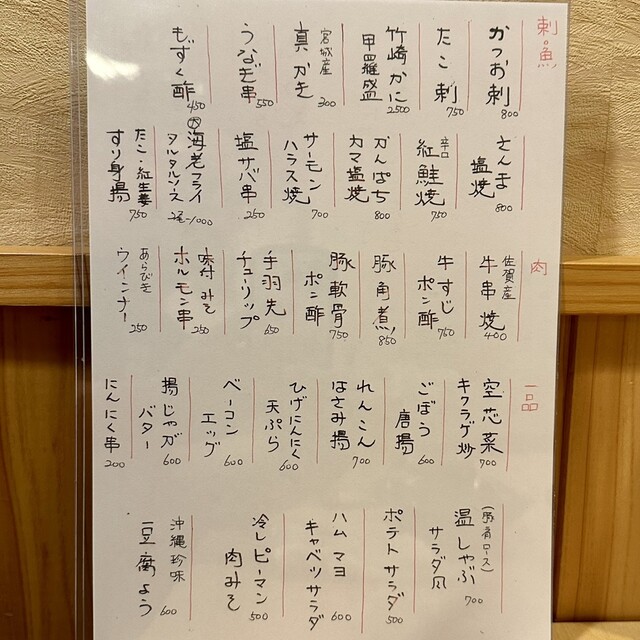 刺・魚
かつお刺
800
たこ刺
750
竹崎かに
甲羅盛
2500
宮城産
真がき
300
うなぎ串
550
もずく酢
450
さんま
塩焼
800
辛口
紅鮭焼
750
かんぱち
カマ塩焼
800
サーモン
ハラス焼
700
塩サバ串
250
大海老フライ
タルタルソース
2尾〜1000
たこ・紅生姜
すり身揚
750
肉
佐賀産
牛串焼
400
牛すじ
ポン酢
750
豚角煮
850
豚軟骨
ポン酢
750
手羽先
チューリップ
650
味付みそ
ホルモン串
250
あらびき
ウインナー
250
一品
空芯菜
キクラゲ炒
700
ごぼう
唐揚
600
れんこん
はさみ揚
700
ひげにんにく
天ぷら
600
ベーコン
エッグ
600
揚じゃが
バター
600
にんにく串
200
(豚肩ロース)
温しゃぶ
サラダ風
700
ポテトサラダ
500
ハムマヨ
キャベツサラダ
600
冷しピーマン
肉みそ
500
沖縄珍味
豆腐よう
600